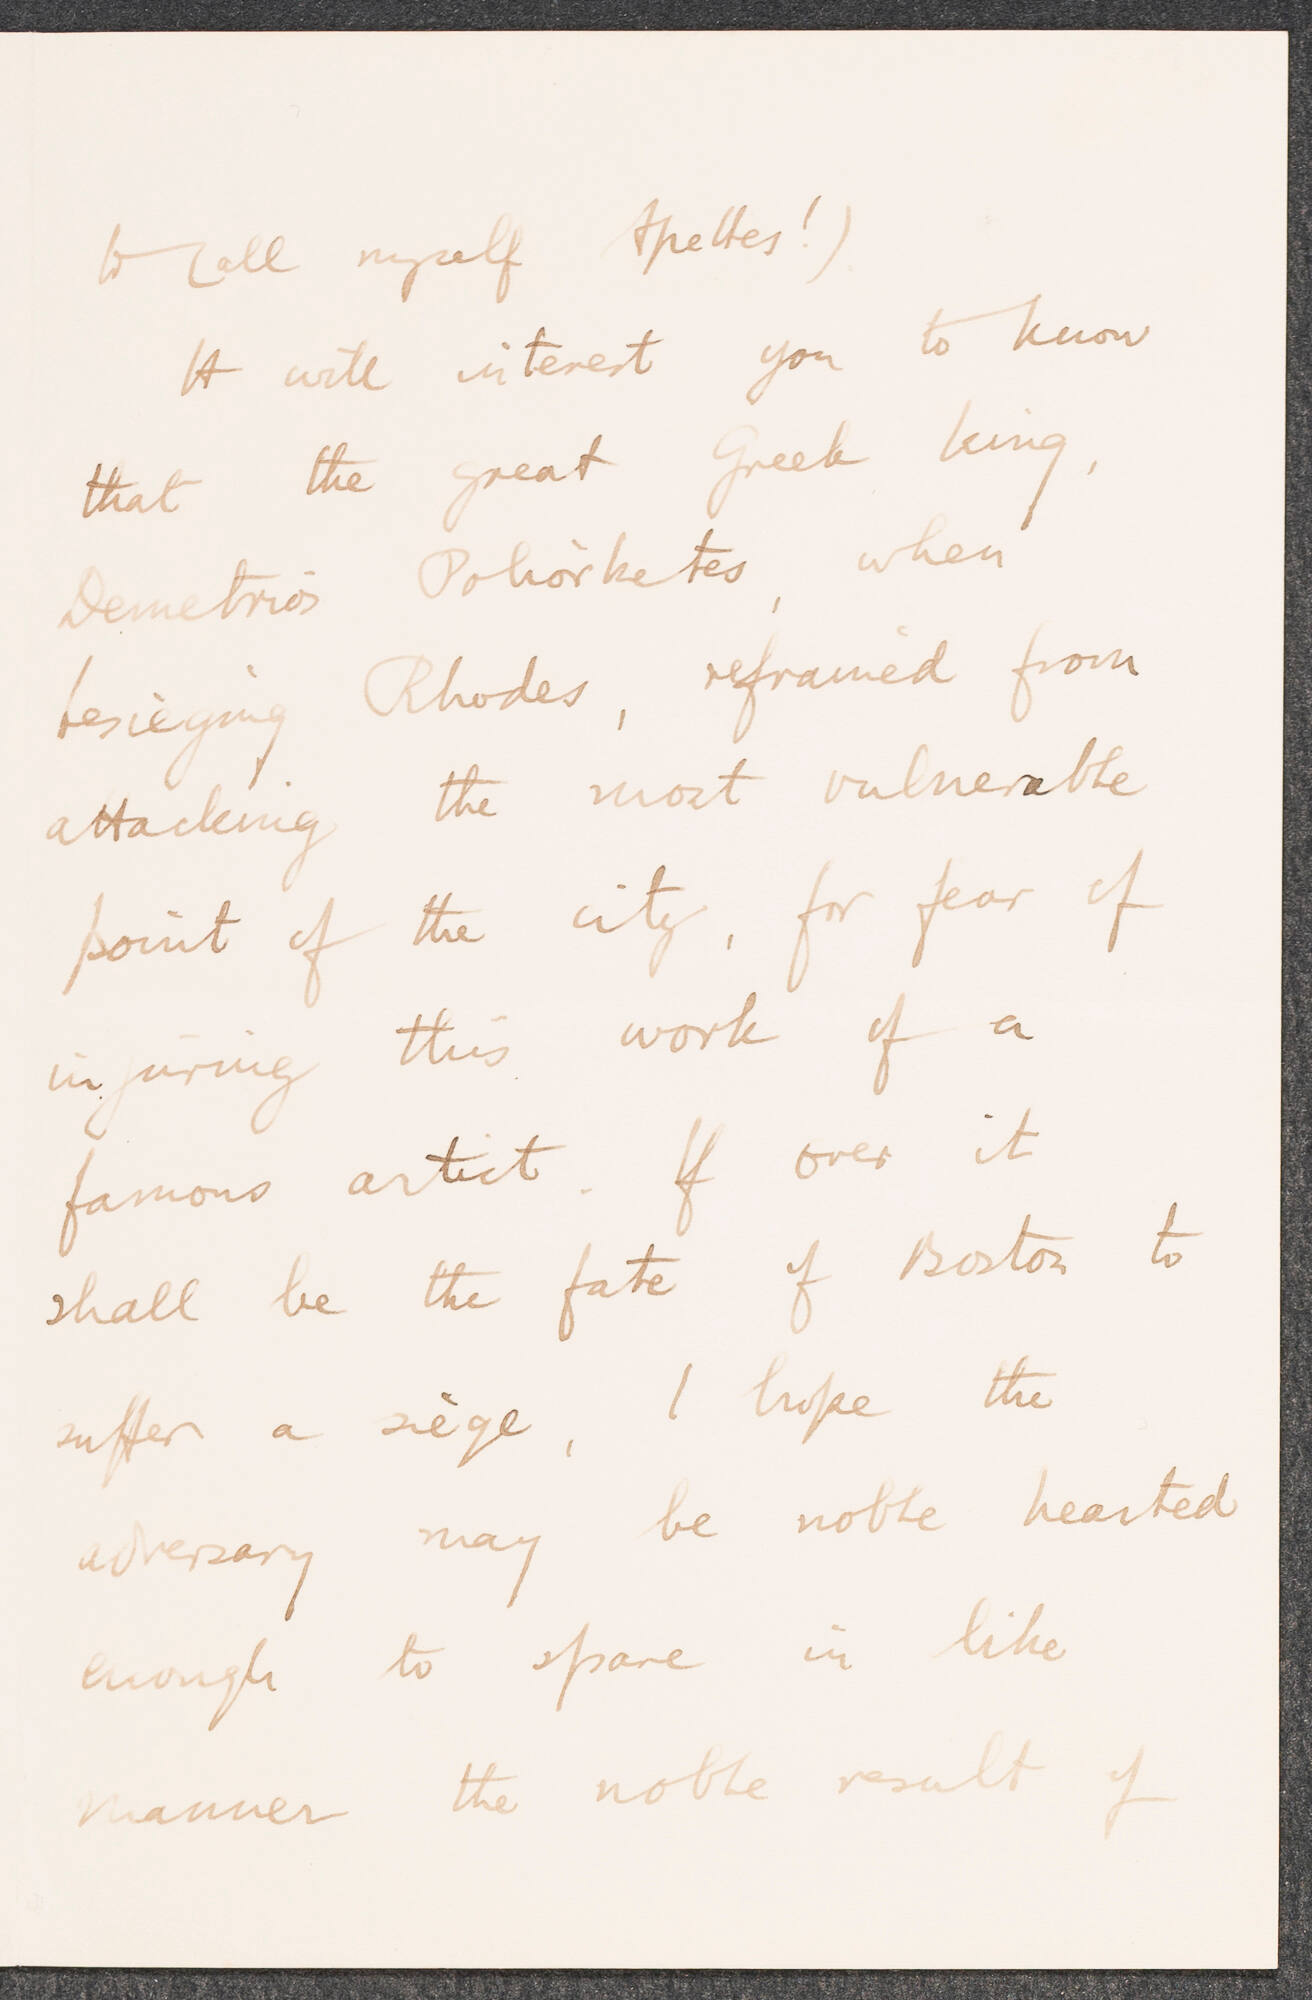 to call myself Apelles!)
It will interest you to know
that the great Greek king,
Demetrios Poliorketes, when
besieging Rhodes, refrained from
attacking the most vulnerable
point of the city, for fear of
injuring this work of a
famous artist. If ever it
shall be the fate of Boston to
suffer a siege, I hope the
adversary may be noble hearted
enough to spare in like
manner the noble result of